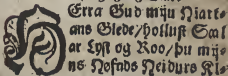 HErra Gud mijn Hiart-
ans Glede/hollust Sæl
ar Lyst og Roo/þu mij-
ns Nafnds Heidurs Kl-